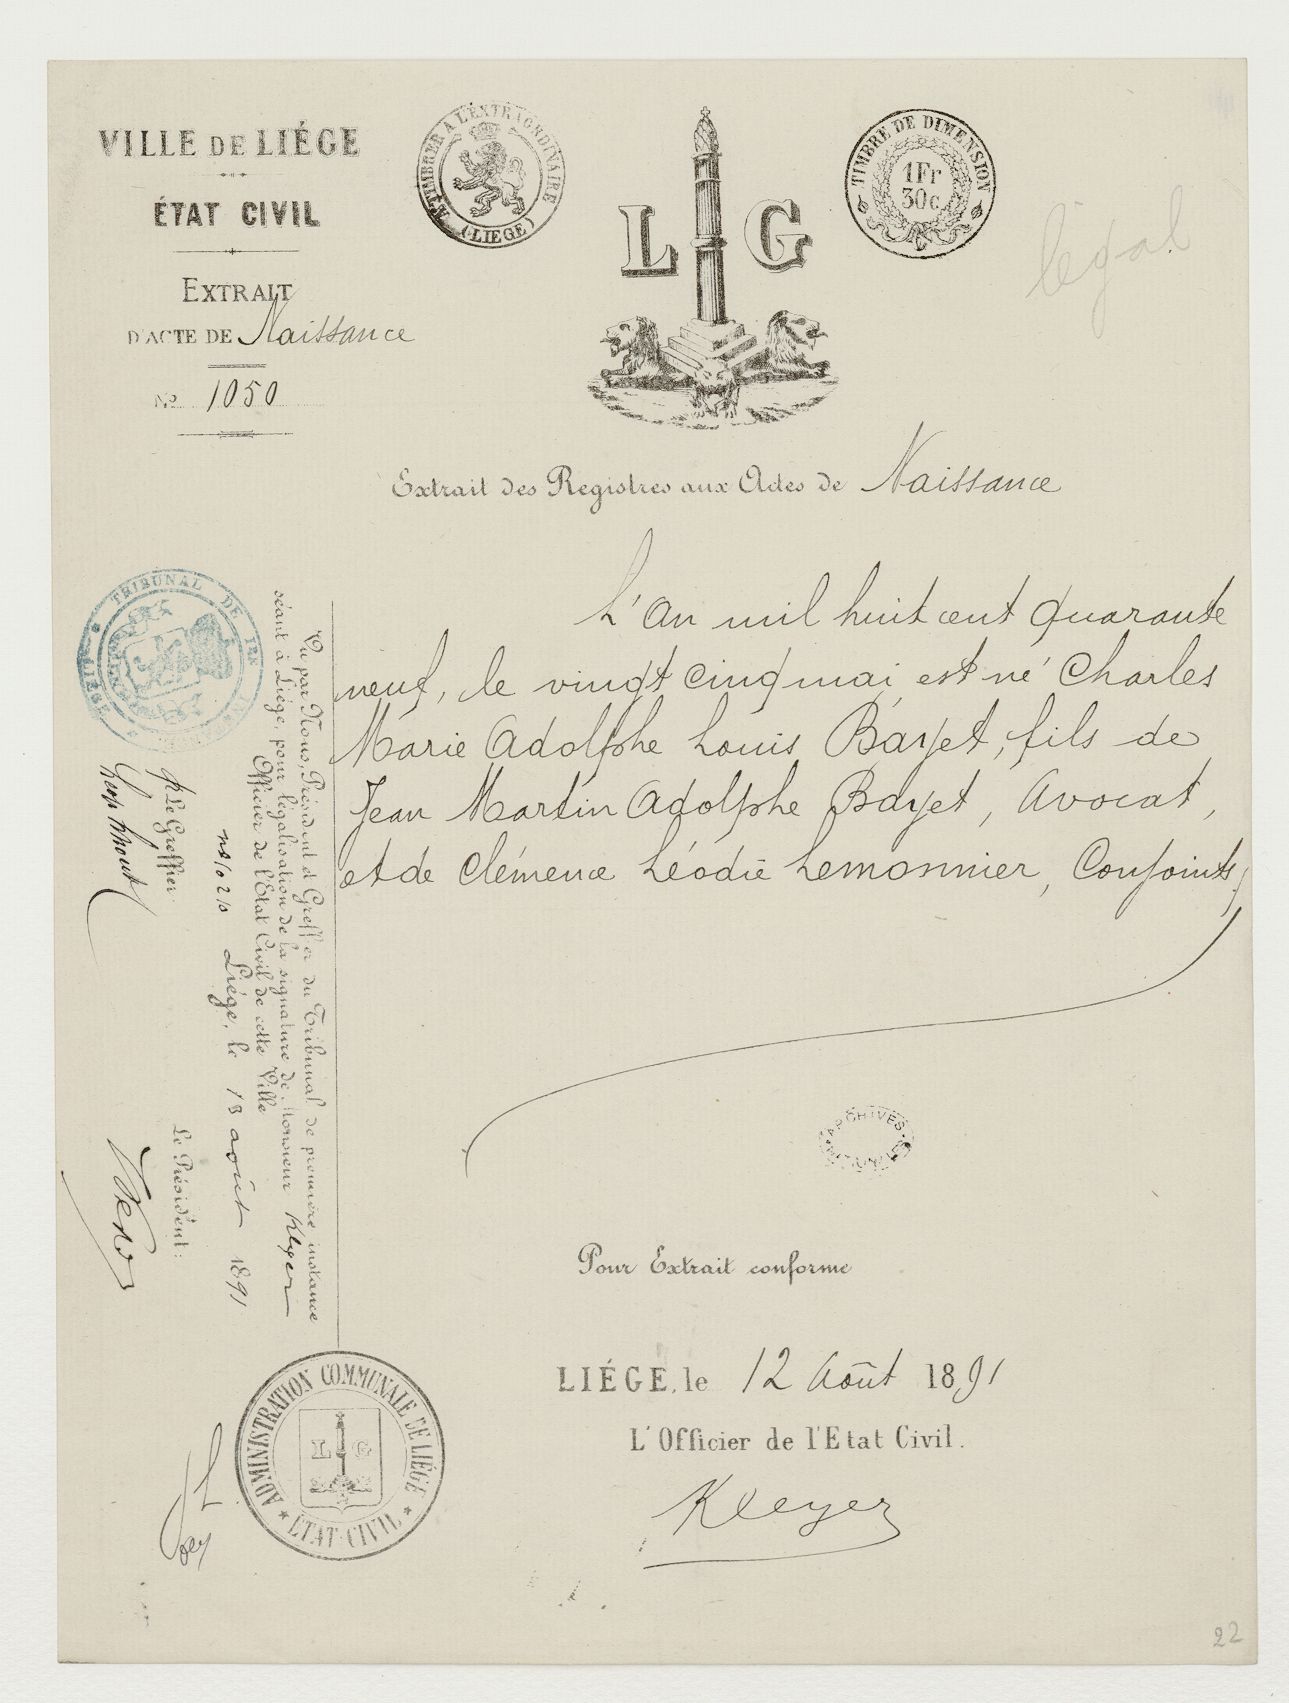 VILLE DE LIÉGE
ÉTAT CIVIL
EXTRAIT
D'ACTE DE Naissance
No 1050
TIMBRER A L'EXTRAORDINAIRE
(LIEGE)
L G
TIMBRE DE DIMENSION
1Fr
30c
légal
Extrait des Registres aux Actes de Naissance
L'an mil huit cent quarante
neuf, le vingt cinq mai, est né Charles
Marie Adolphe Louis Bayet, fils de
Jean Martin Adolphe Bayet, Avocat,
et de Clémence Léodie Lemonnier, Conjoints,
TRIBUNAL DE 1RE
LIEGE
Vu par Nous, Président et Greffier du Tribunal de première instance
séant à Liége, pour légalisation de la signature de Monsieur Kleyer
Officier de l'Etat Civil de cette Ville
Liége, le 13 août 1891
Le Greffier
Le Président:
ARCHIVES
Pour Extrait conforme
LIÉGE, le 12 Août 1891
L'Officier de l'Etat Civil.
Kleyer
ADMINISTRATION COMMUNALE DE LIÉGE
L G
ÉTAT-CIVIL
22